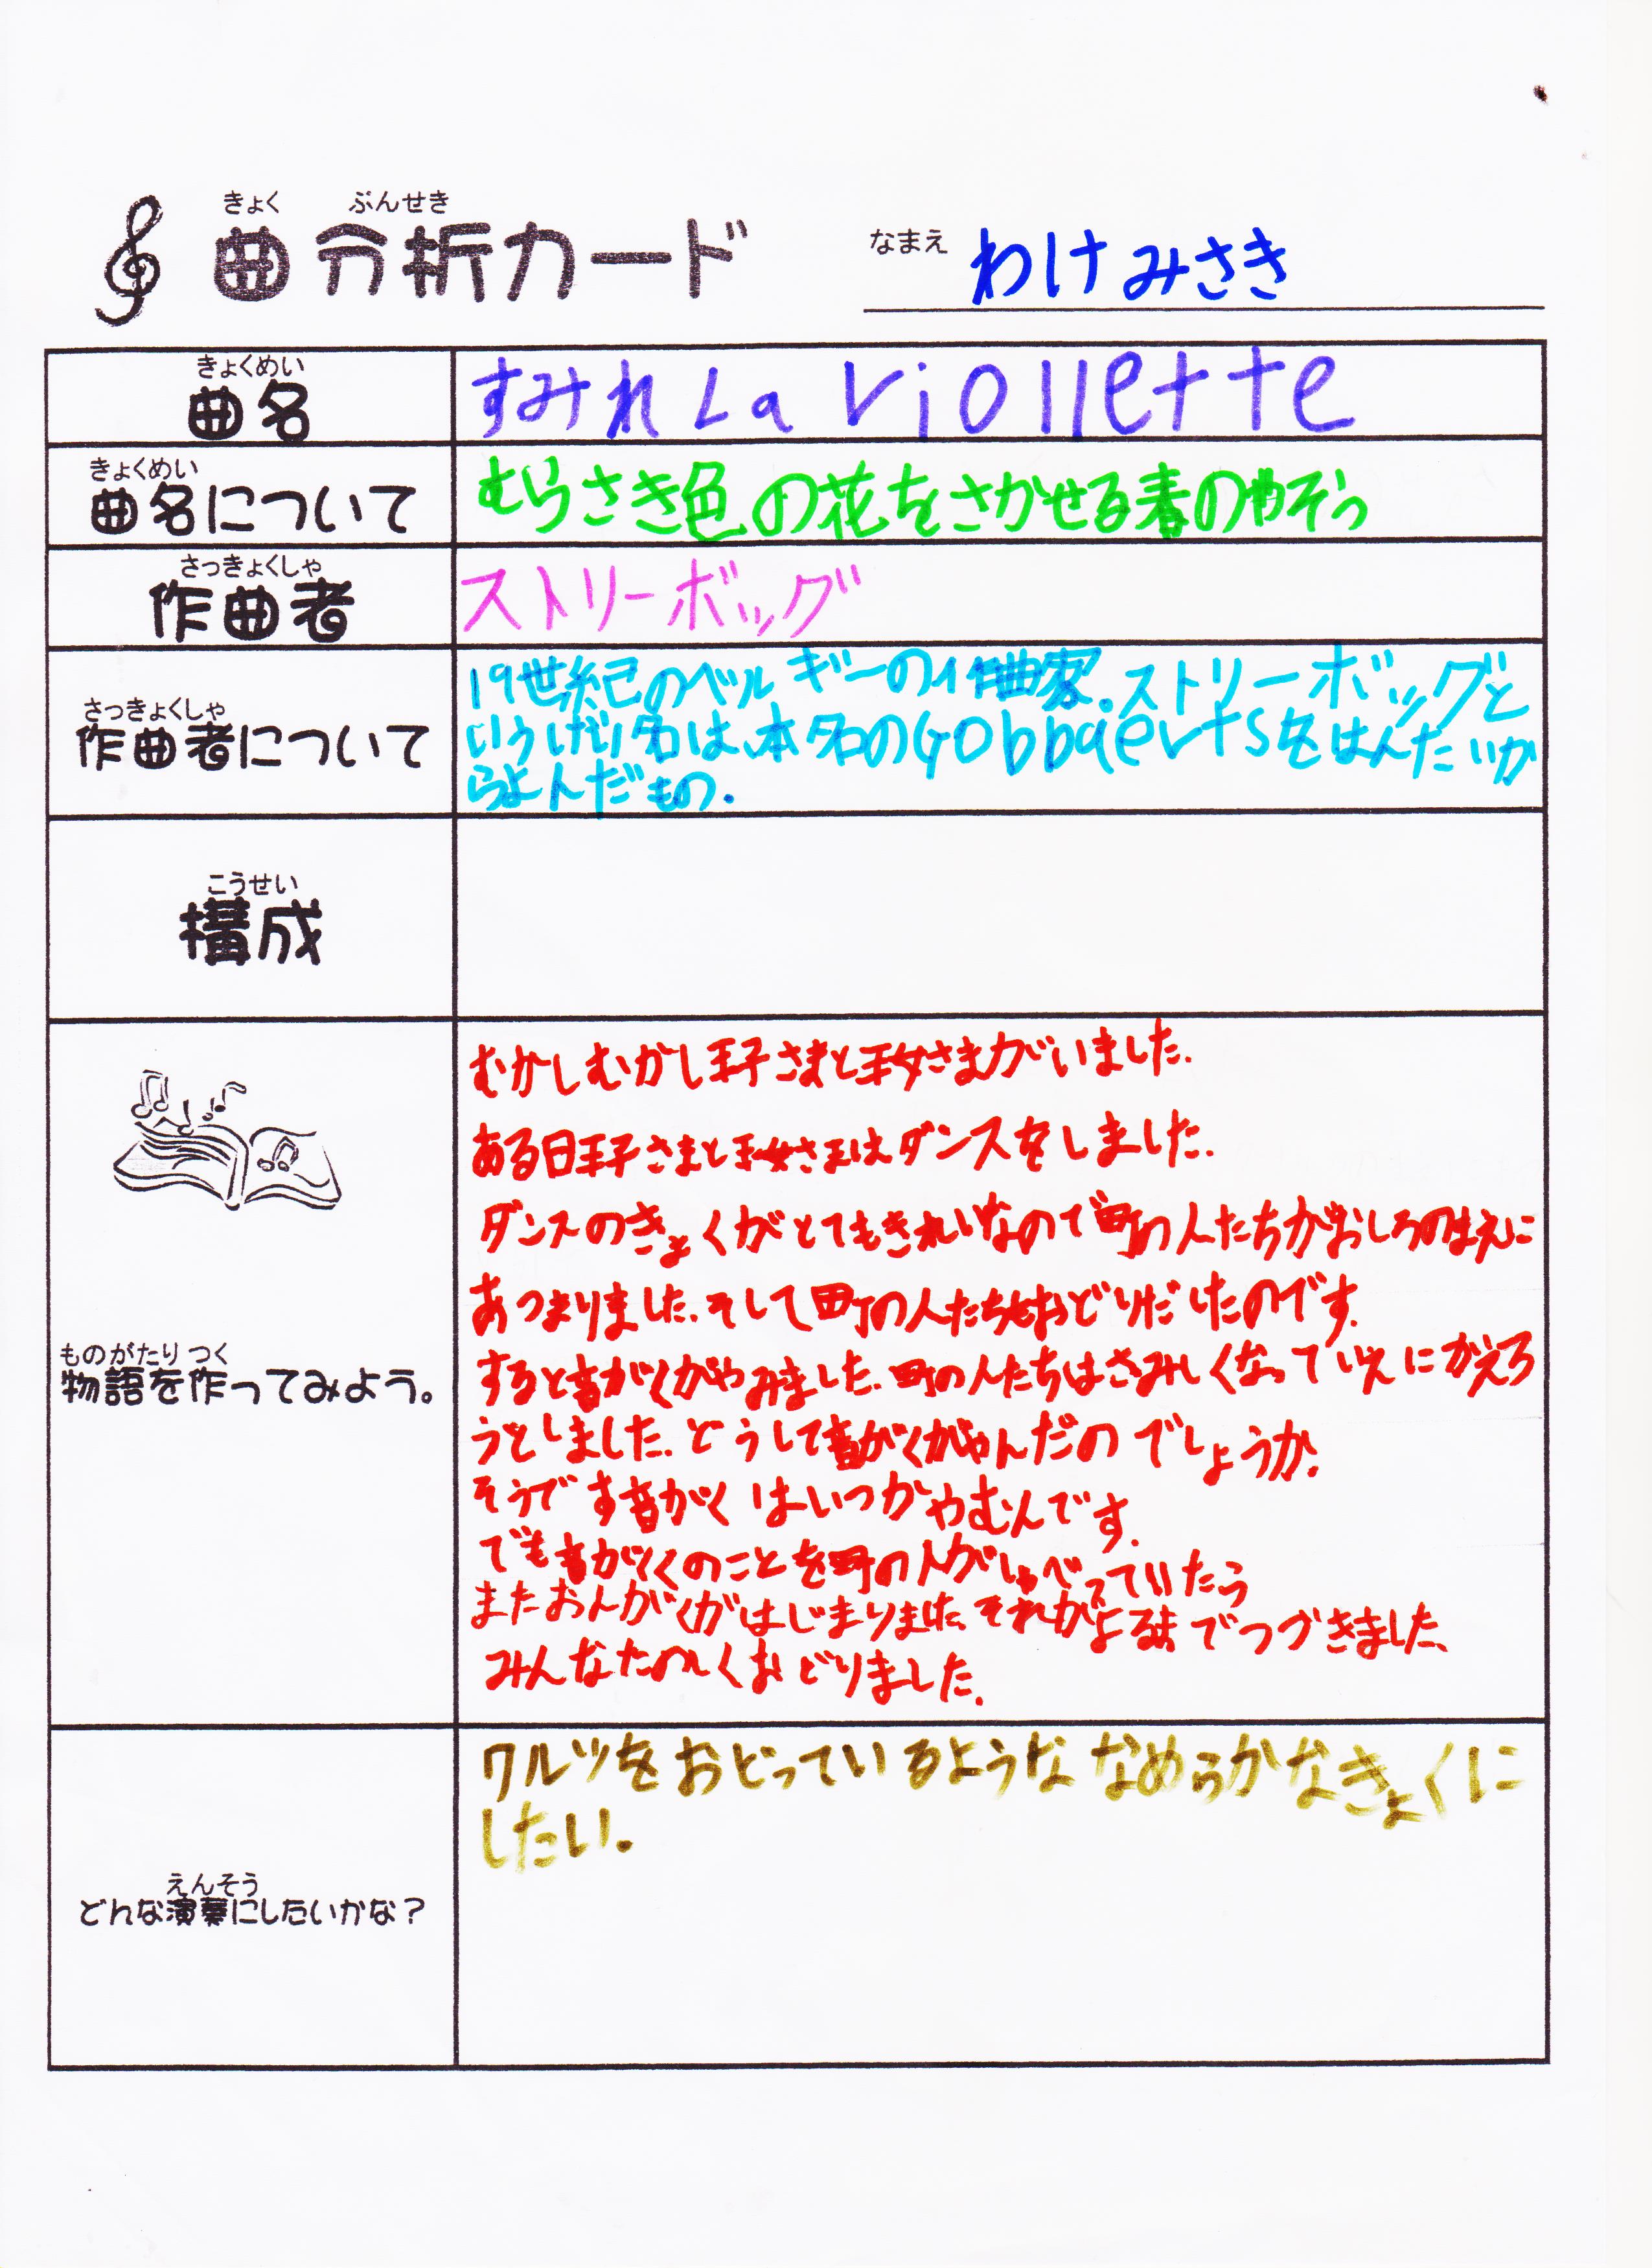 きょく ぶんせき
曲分析カード
なまえ わけみさき
きょくめい
曲名
すみれ La Viollette
きょくめい
曲名について
むらさき色の花をさかせる春のやそう
さっきょくしゃ
作曲者
ストリーボッグ
さっきょくしゃ
作曲者について
19世紀のベルギーの作曲家.ストリーボッグと
いうげい名は、本名のGobbaertsをはんたいか
らよんだもの.
こうせい
構成
ものがたり つく
物語を作ってみよう。
むかしむかし王子さまと王女さまがいました.
ある日王子さまと王女さまはダンスをしました.
ダンスのきょくがとてもきれいなので町の人たちがおしろのまえに
あつまりました.そして町の人たちもおどりだしたのです.
すると音がくがやみました.町の人たちはさみしくなっていえにかえろ
うとしました.どうして音がくがやんだのでしょうか.
そうです音がくはいつかやむんです.
でも音がくのことを町の人がしゃべっていたら
またおんがくがはじまりました.それがよるまでつづきました、
みんなたのしくおどりました.
えんそう
どんな演奏にしたいかな?
ワルツをおどっているようななめらかなきょくに
したい.